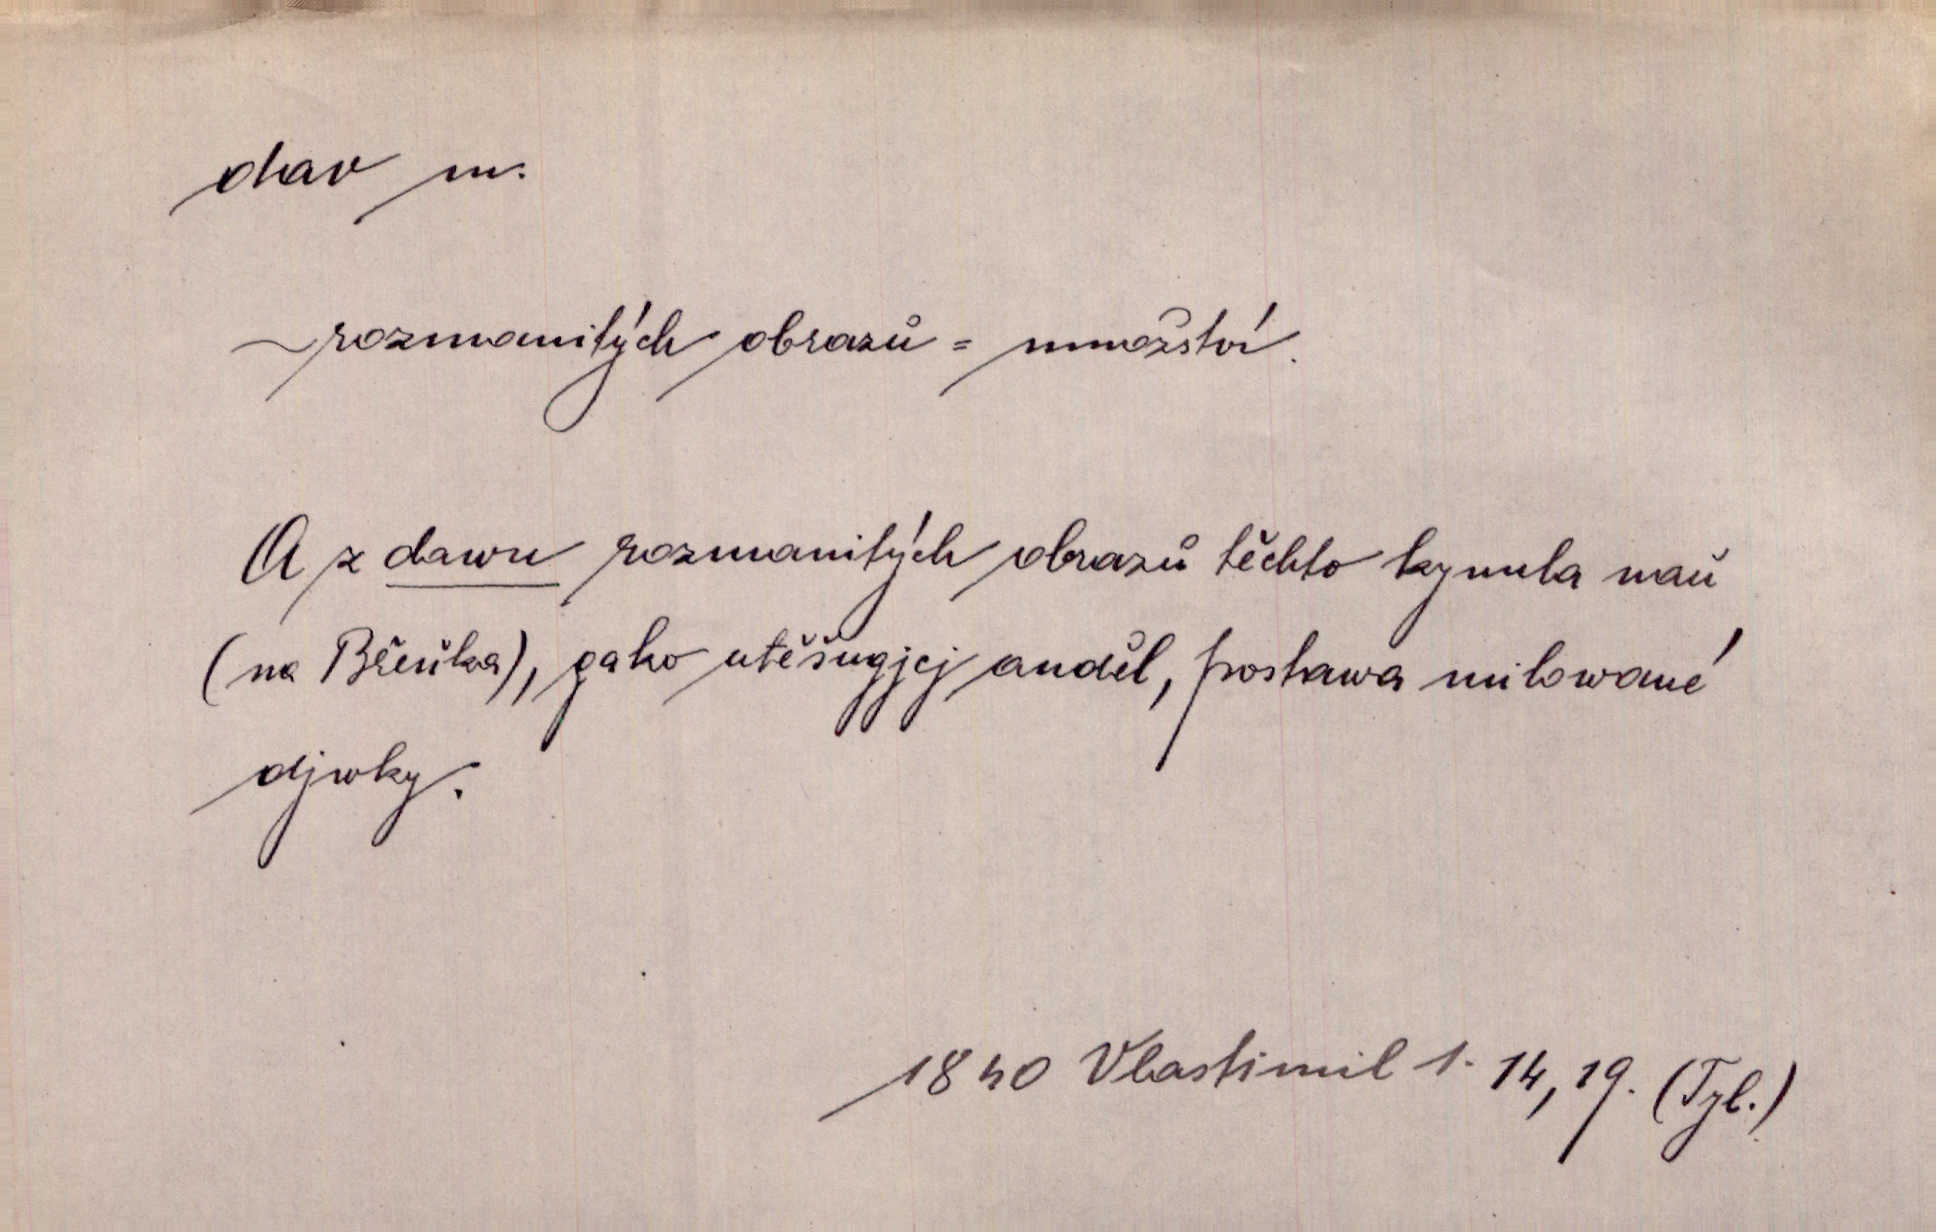 dav m.
~ rozmanitých obrazů = množství.
A z dawu rozmanitých obrazů těchto kynula naň
(na Břeňka), gako utěšugjcj anděl, postawa milowané
djwky.
1840 Vlastimil 1. 14, 19. (Tyl.)